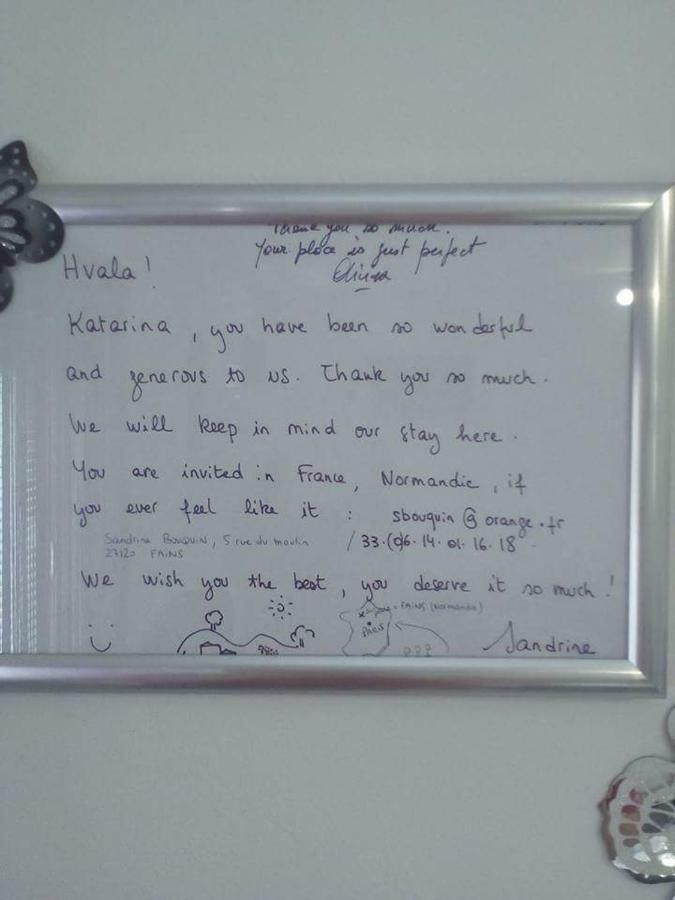 Thank you so much.
Your place is just perfect
Hvala!
Katarina, you have been so wonderful
and generous to us. Thank you so much.
We will keep in mind our stay here.
You are invited in France, Normandie, if
you ever feel like it : sbouquin@orange.fr
Sandrine BOUQUIN, 5 rue du moulin / 33.(0)6.14.01.16.18
27120 FAINS
We wish you the best, you deserve it so much!
FAINS (Normandie)
PARIS
Sandrine